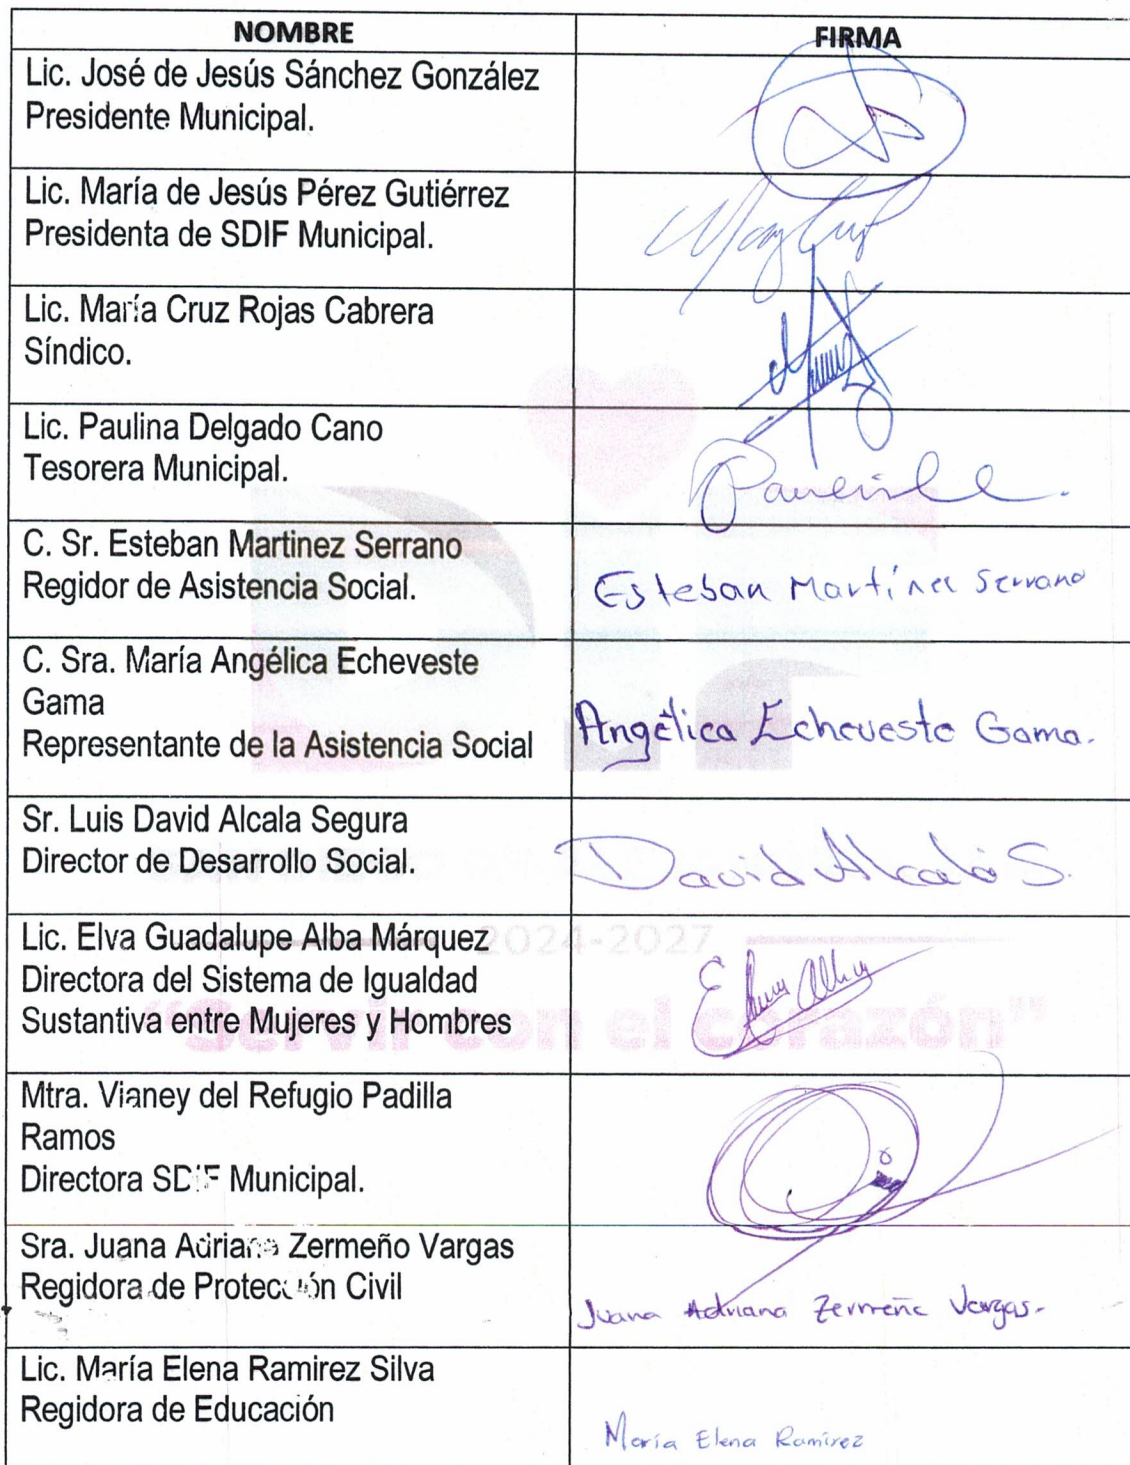 NOMBRE
FIRMA
Lic. José de Jesús Sánchez González
Presidente Municipal.
Lic. María de Jesús Pérez Gutiérrez
Presidenta de SDIF Municipal.
Lic. María Cruz Rojas Cabrera
Síndico.
Lic. Paulina Delgado Cano
Tesorera Municipal.
C. Sr. Esteban Martinez Serrano
Regidor de Asistencia Social.
Esteban Martínez Serrano
C. Sra. María Angélica Echeveste
Gama
Representante de la Asistencia Social
Angélica Echeveste Gama.
Sr. Luis David Alcala Segura
Director de Desarrollo Social.
David Alcalá S.
Lic. Elva Guadalupe Alba Márquez
2024-2027
Directora del Sistema de Igualdad
Sustantiva entre Mujeres y Hombres
"Servir con el corazón"
Mtra. Vianey del Refugio Padilla
Ramos
Directora SDIF Municipal.
Sra. Juana Adriana Zermeño Vargas
Regidora de Protección Civil
Juana Adriana Zermeño Vargas.
Lic. María Elena Ramirez Silva
Regidora de Educación
María Elena Ramírez